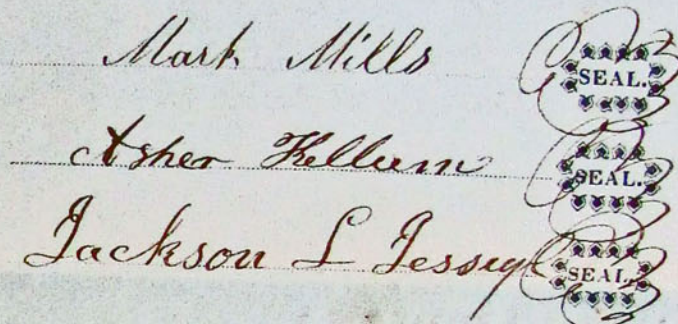 Mark Mills SEAL.
Asher Kellum SEAL.
Jackson L Jessup SEAL.